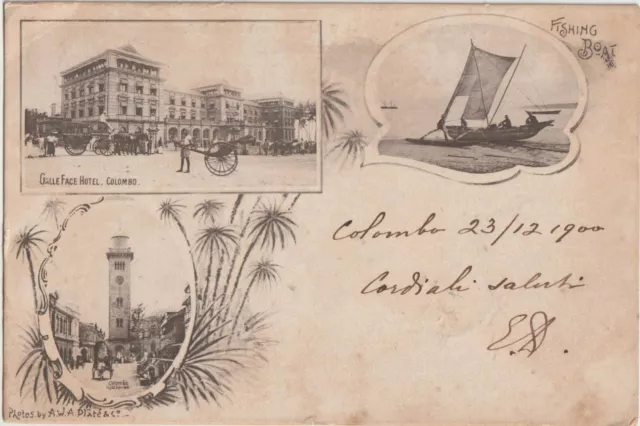 FISHING
BOAT
GALLE FACE HOTEL, COLOMBO.
Colombo 23/12 1900
Cordiali saluti
COLOMBO
PHOTOS. BY A.W.A. PLATÉ & Co.